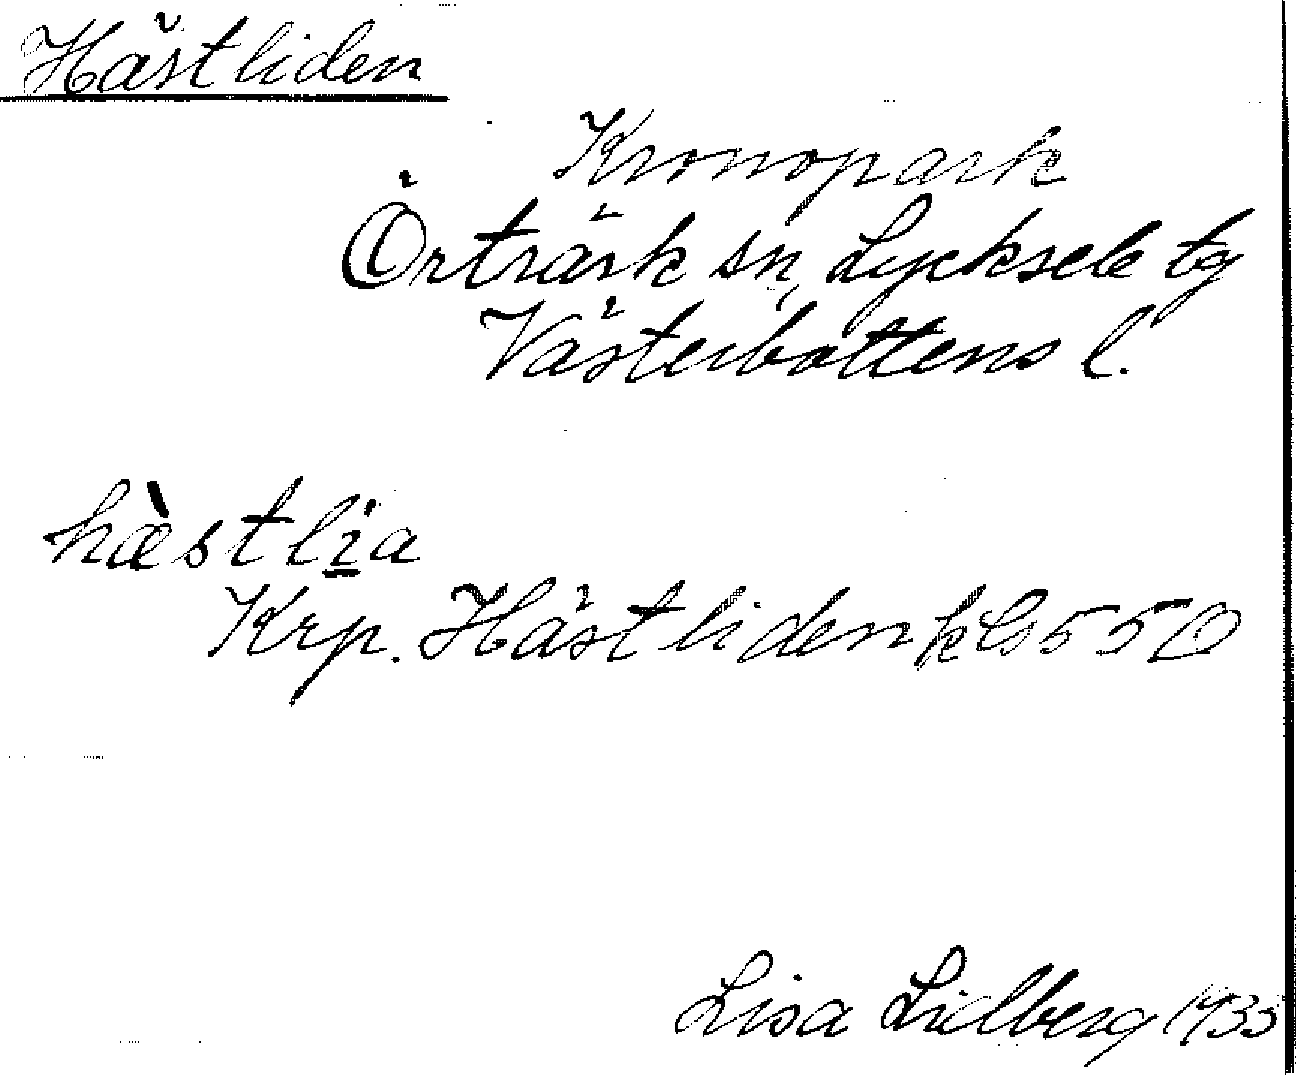 Hästliden
Kronopark
Örträsk sn, Lycksele tg
Västerbottens l.
hæ̀stli̠a
Krp. Hästliden k Gs 55 D
Lisa Lidberg 1935